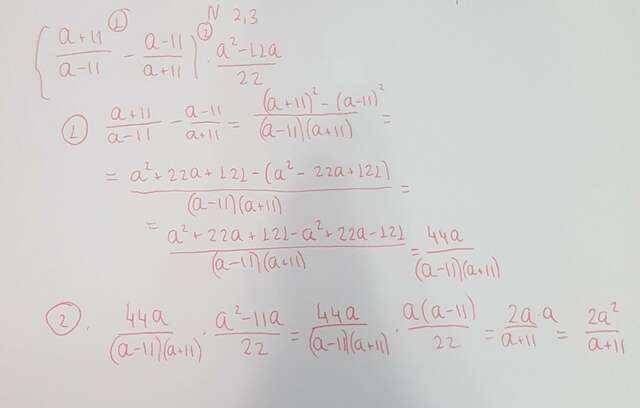 N 2,3
( (a+11)/(a-11) ① - (a-11)/(a+11) ) ② · (a²-11a)/22
① (a+11)/(a-11) - (a-11)/(a+11) = ((a+11)² - (a-11)²)/((a-11)(a+11)) =
= (a²+22a+121-(a²-22a+121))/((a-11)(a+11)) =
= (a²+22a+121-a²+22a-121)/((a-11)(a+11)) = 44a/((a-11)(a+11))
②. 44a/((a-11)(a+11)) · (a²-11a)/22 = 44a/((a-11)(a+11)) · (a(a-11))/22 = (2a·a)/(a+11) = 2a²/(a+11)